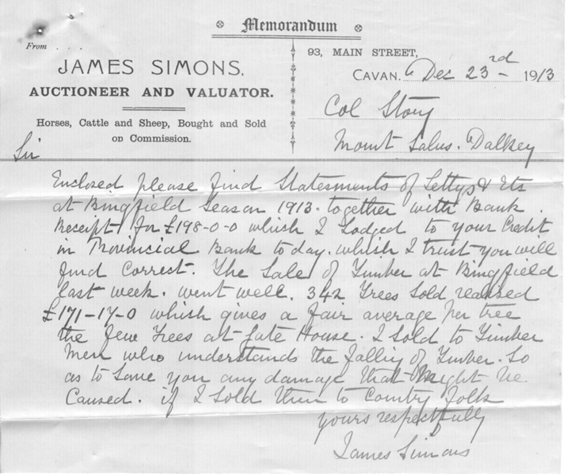 Memorandum
From
JAMES SIMONS,
AUCTIONEER AND VALUATOR.
Horses, Cattle and Sheep, Bought and Sold
on Commission.
93, MAIN STREET,
CAVAN. Dec 23rd 1913
Col Story
Mount Salus. Dalkey
Sir
Enclosed please find Statesments of Lettgs & Ets
at Bingfield Season 1913. together with Bank
Receipt for £198-0-0 which I Lodged to your Credit
in Provincial Bank to day. which I trust you will
find Correct. The Sale of Timber at Bingfield
last week. went well. 342 Trees Sold realised
£171-17-0 which gives a fair average per tree
the few Trees at Gate House. I sold to Timber
Men who understands the falling of Timber. So
as to Save you any damage that Might be
Caused. if I Sold them to Country folks
yours respectfully
James Simons